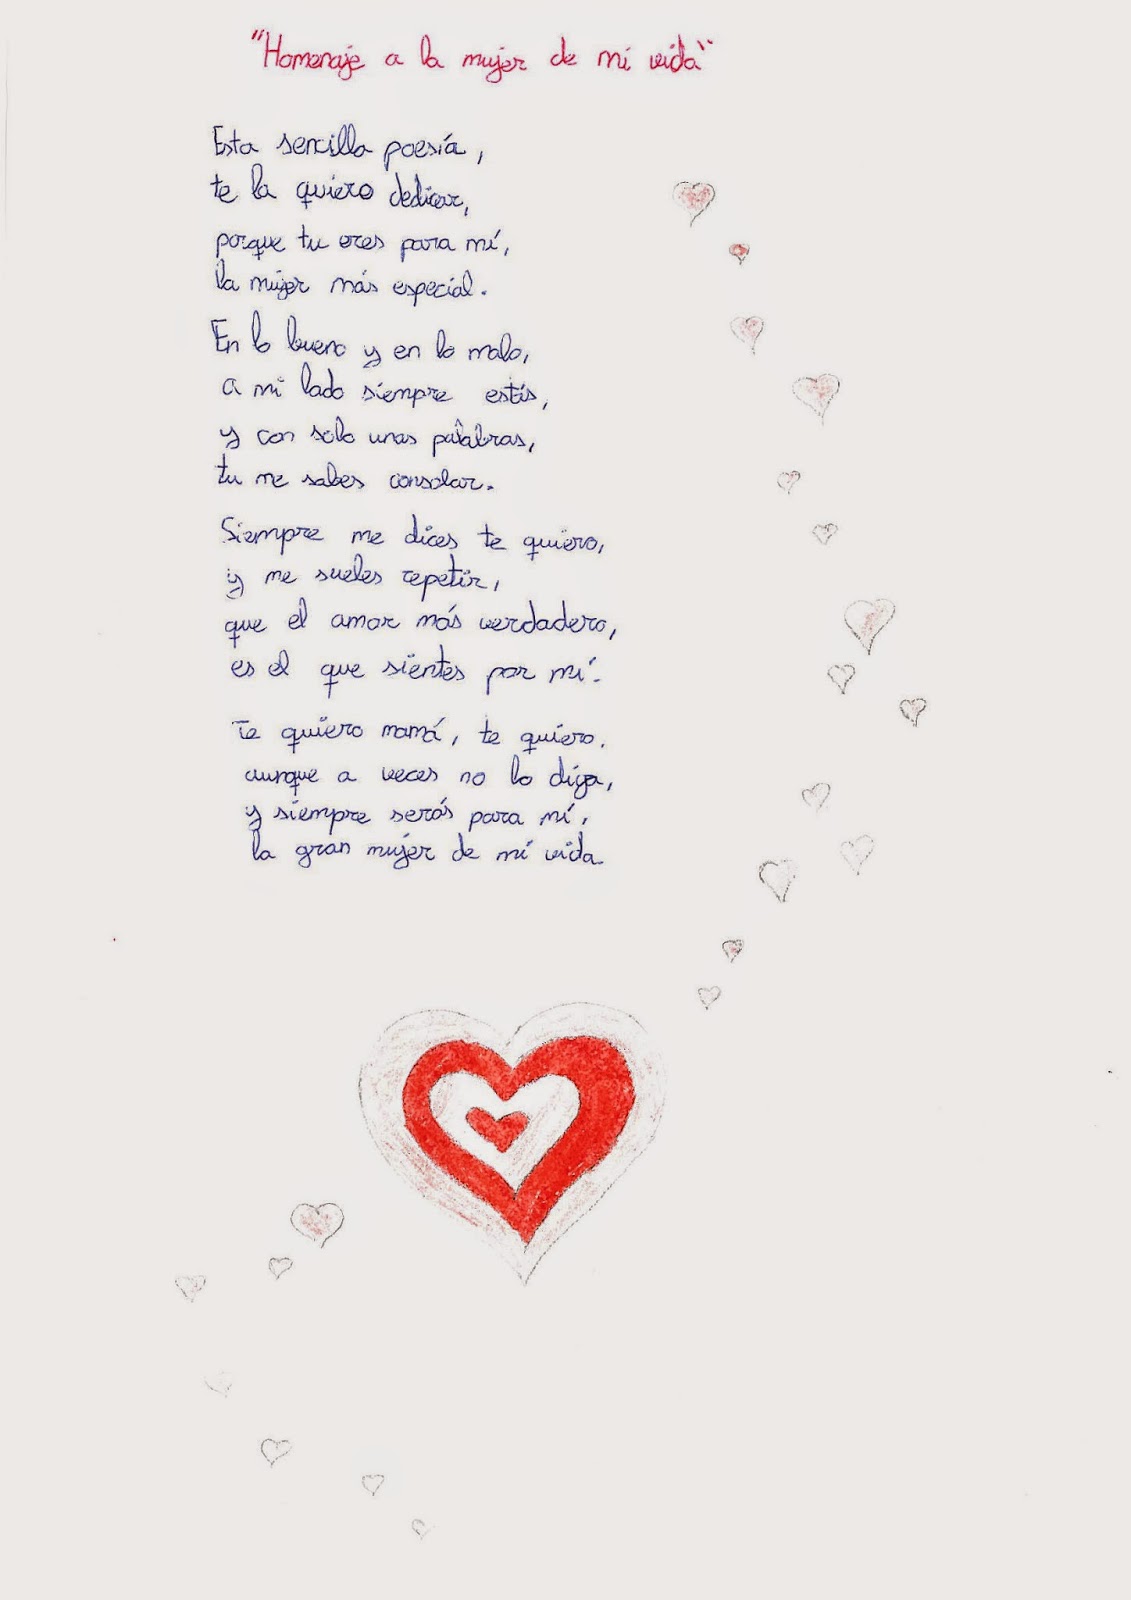 "Homenaje a la mujer de mi vida"
Esta sencilla poesía,
te la quiero dedicar,
porque tu eres para mí,
la mujer más especial.
En lo bueno y en lo malo,
a mi lado siempre estás,
y con solo unas palabras,
tu me sabes consolar.
Siempre me dices te quiero,
y me sueles repetir,
que el amor más verdadero,
es el que sientes por mí.
Te quiero mamá, te quiero.
aunque a veces no lo diga,
y siempre serás para mí,
la gran mujer de mi vida.